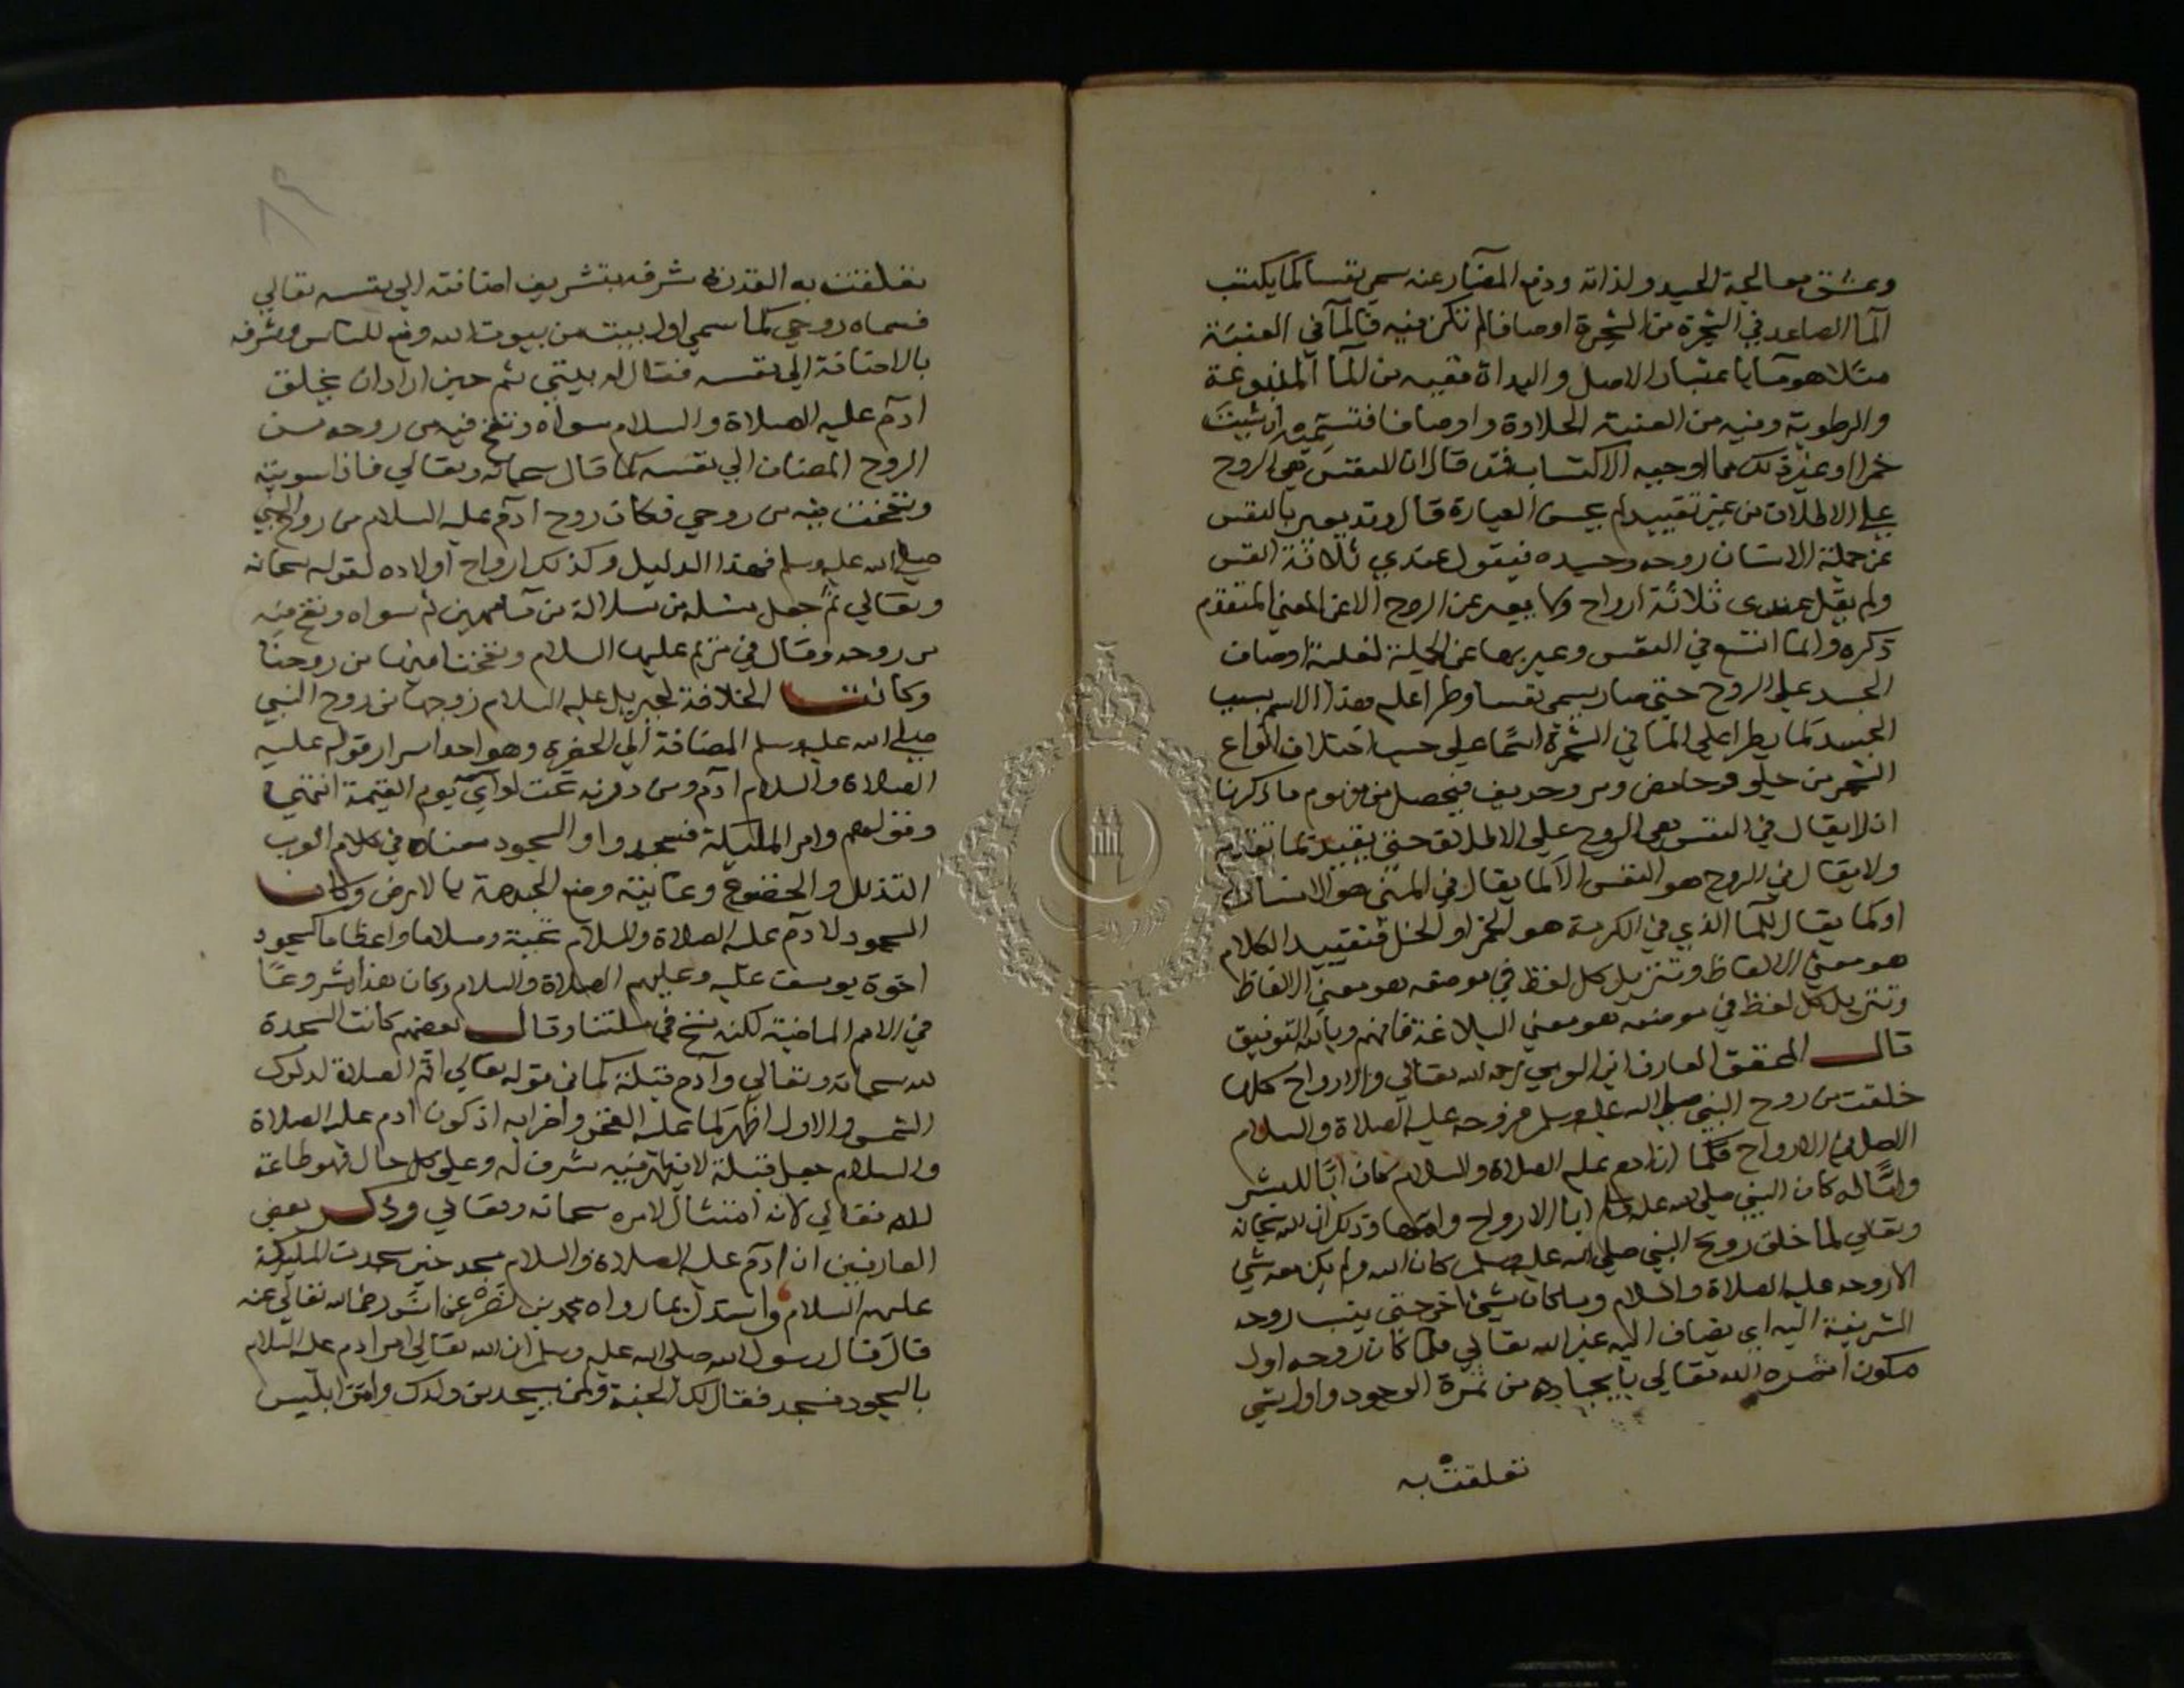 وعشق مصالحة الجسد ولذاته ودفع المضار عنه سمي نفسا كما يكتسب
الما الصاعد في الشجرة من الشجرة اوصافا لم تكن فيه فالما في العنبة
مثلا هو ما باعتبار الاصل والبداة ففيه من الما الميوعة
والرطوبة وفيه من العنبة الحلاوة واوصافا فتسميه ان شيت
خمرا او غير ذلك مما اوجبه الاكتساب فمن قال ان النفس هي الروح
علي الاطلاق من غير تقييد لم يحسن العبارة قال وقد يعبر بالنفس
عن جملة الانسان روحه وجسده فيقول عندي ثلاثة انفس
ولم يقل عندي ثلاثة ارواح ولا يعبر عن الروح الا عن المعني المتقدم
ذكره وانما اتسع في النفس وعبر بها عن الجملة لغلبة اوصاف
الجسد علي الروح حتي صار يسمي نفسا وطرا عليه هذا الاسم بسبب
الجسد كما يطرا علي الما في الشجرة اسما علي حسب اختلاف انواع
الشجر من حلو وحامض ومر وحريف فيحصل من مفهوم ما ذكرنا
ان لا يقال في النفس هي الروح علي الاطلاق حتي يقيد بما تقدم
ولا يقال في الروح هو النفس الا كما يقال في المني هو الانسان
او كما يقال للما الذي في الكرمة هو الخمر او الخل فتقييد الكلام
هو معني الالفاظ وتنزيل كل لفظ في موضعه هو معني الالفاظ
وتنزيل كل لفظ في موضعه هو معني البلاغة فافهم وبالله التوفيق
قال المحقق العارف ابن رحمه الله تعالي والارواح كلها
خلقت من روح النبي صلي الله عليه وسلم فروحه عليه الصلاة والسلام
اصل الارواح فكما ان ادم عليه الصلاة والسلام كان ابا للبشر
واما له كان النبي صلي الله عليه وسلم ابا الارواح وامها وذلك ان الله سبحانه
وتعالي لما خلق روح النبي صلي الله عليه وسلم كان الله ولم يكن معه شي
الا روحه عليه الصلاة والسلام وما كان شي اخر حتي ينسب روحه
الشريفة اليه اي يضاف اليه غير الله تعالي فلما كان روحه اول
مكون الله تعالي بايجاده من ثمرة الوجود واول شي
تعلقت به
تعلقت به القدرة شرفه بتشريف اضافته الي نفسه تعالي
فسماه روحي كما سمي اول بيت من بيوت الله وضع للناس وشرفه
بالاضافة الي نفسه فقال له بيتي ثم حين اراد ان يخلق
ادم عليه الصلاة والسلام سواه ونفخ فيه من روحه من
الروح المضاف الي نفسه كما قال سبحانه وتعالي فاذا سويته
ونفخت فيه من روحي فكان روح ادم عليه السلام من روح النبي
صلي الله عليه وسلم فهذا الدليل وكذلك ارواح اولاده لقوله سبحانه
وتعالي ثم جعل نسله من سلالة من ما مهين ثم سواه ونفخ فيه
من روحه وقال في مريم عليها السلام ونفخنا فيها من روحنا
وكانت الخلافة لجبريل عليه السلام من روح النبي
صلي الله عليه وسلم المضافة الي الحضرة وهو احد اسرار قوله عليه
الصلاة والسلام ادم ومن دونه تحت لواي يوم القيمة انتهي
وقوله وامر المليكة فسجدوا والسجود معناه في كلام العرب
التذلل والخضوع وغايته وضع الجبهة بالارض وكان
السجود لادم عليه الصلاة والسلام تحية وسلاما واعظاما كسجود
اخوة يوسف عليه وعليهم الصلاة والسلام وكان هذا مشروعا
في الامم الماضية لكنه نسخ في ملتنا وقال بعضهم كانت السجدة
لله سبحانه وتعالي وادم قبلة كما في قوله تعالي اقم الصلاة لدلوك
الشمس والاول اظهر لما عليه الفخر واضرابه اذ كون ادم عليه الصلاة
والسلام جعل قبلة لا يظهر فيه شرف له وعلي كل حال فهو طاعة
لله تعالي لانه امتثال لامره سبحانه وتعالي وذكر بعض
العارفين ان ادم عليه الصلاة والسلام سجد حين سجدت المليكة
عليهم السلام واستدل بما رواه محمد بن نصر عن انس رضي الله تعالي عنه
قال قال رسول الله صلي الله عليه وسلم ان الله تعالي امر ادم عليه السلام
بالسجود فسجد فقال لك الجنة ولمن سجد من ولدك وامر ابليس